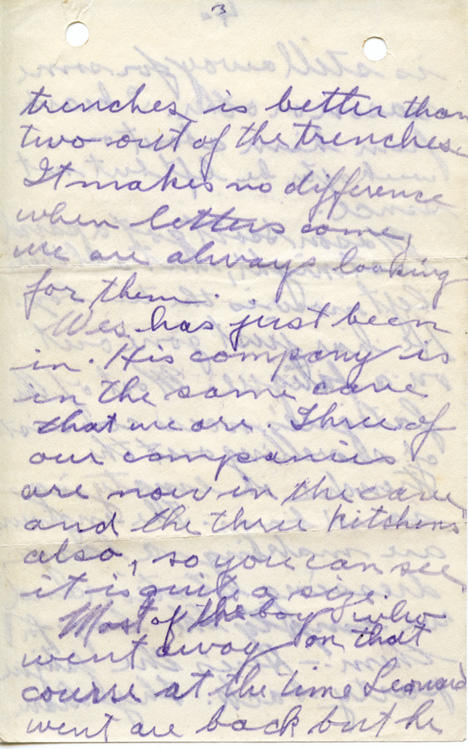 3
trenches, is better than
two out of the trenches.
It makes no difference
when letters come,
we are always looking
for them.
Wes has just been
in. His company is
in the same cave
that we are. Three of
our companies
are now in the cave
and the three kitchens
also, so you can see
it is quite a size.
Most of the boys who
went away on that
course at the time Leonard
went are back but he